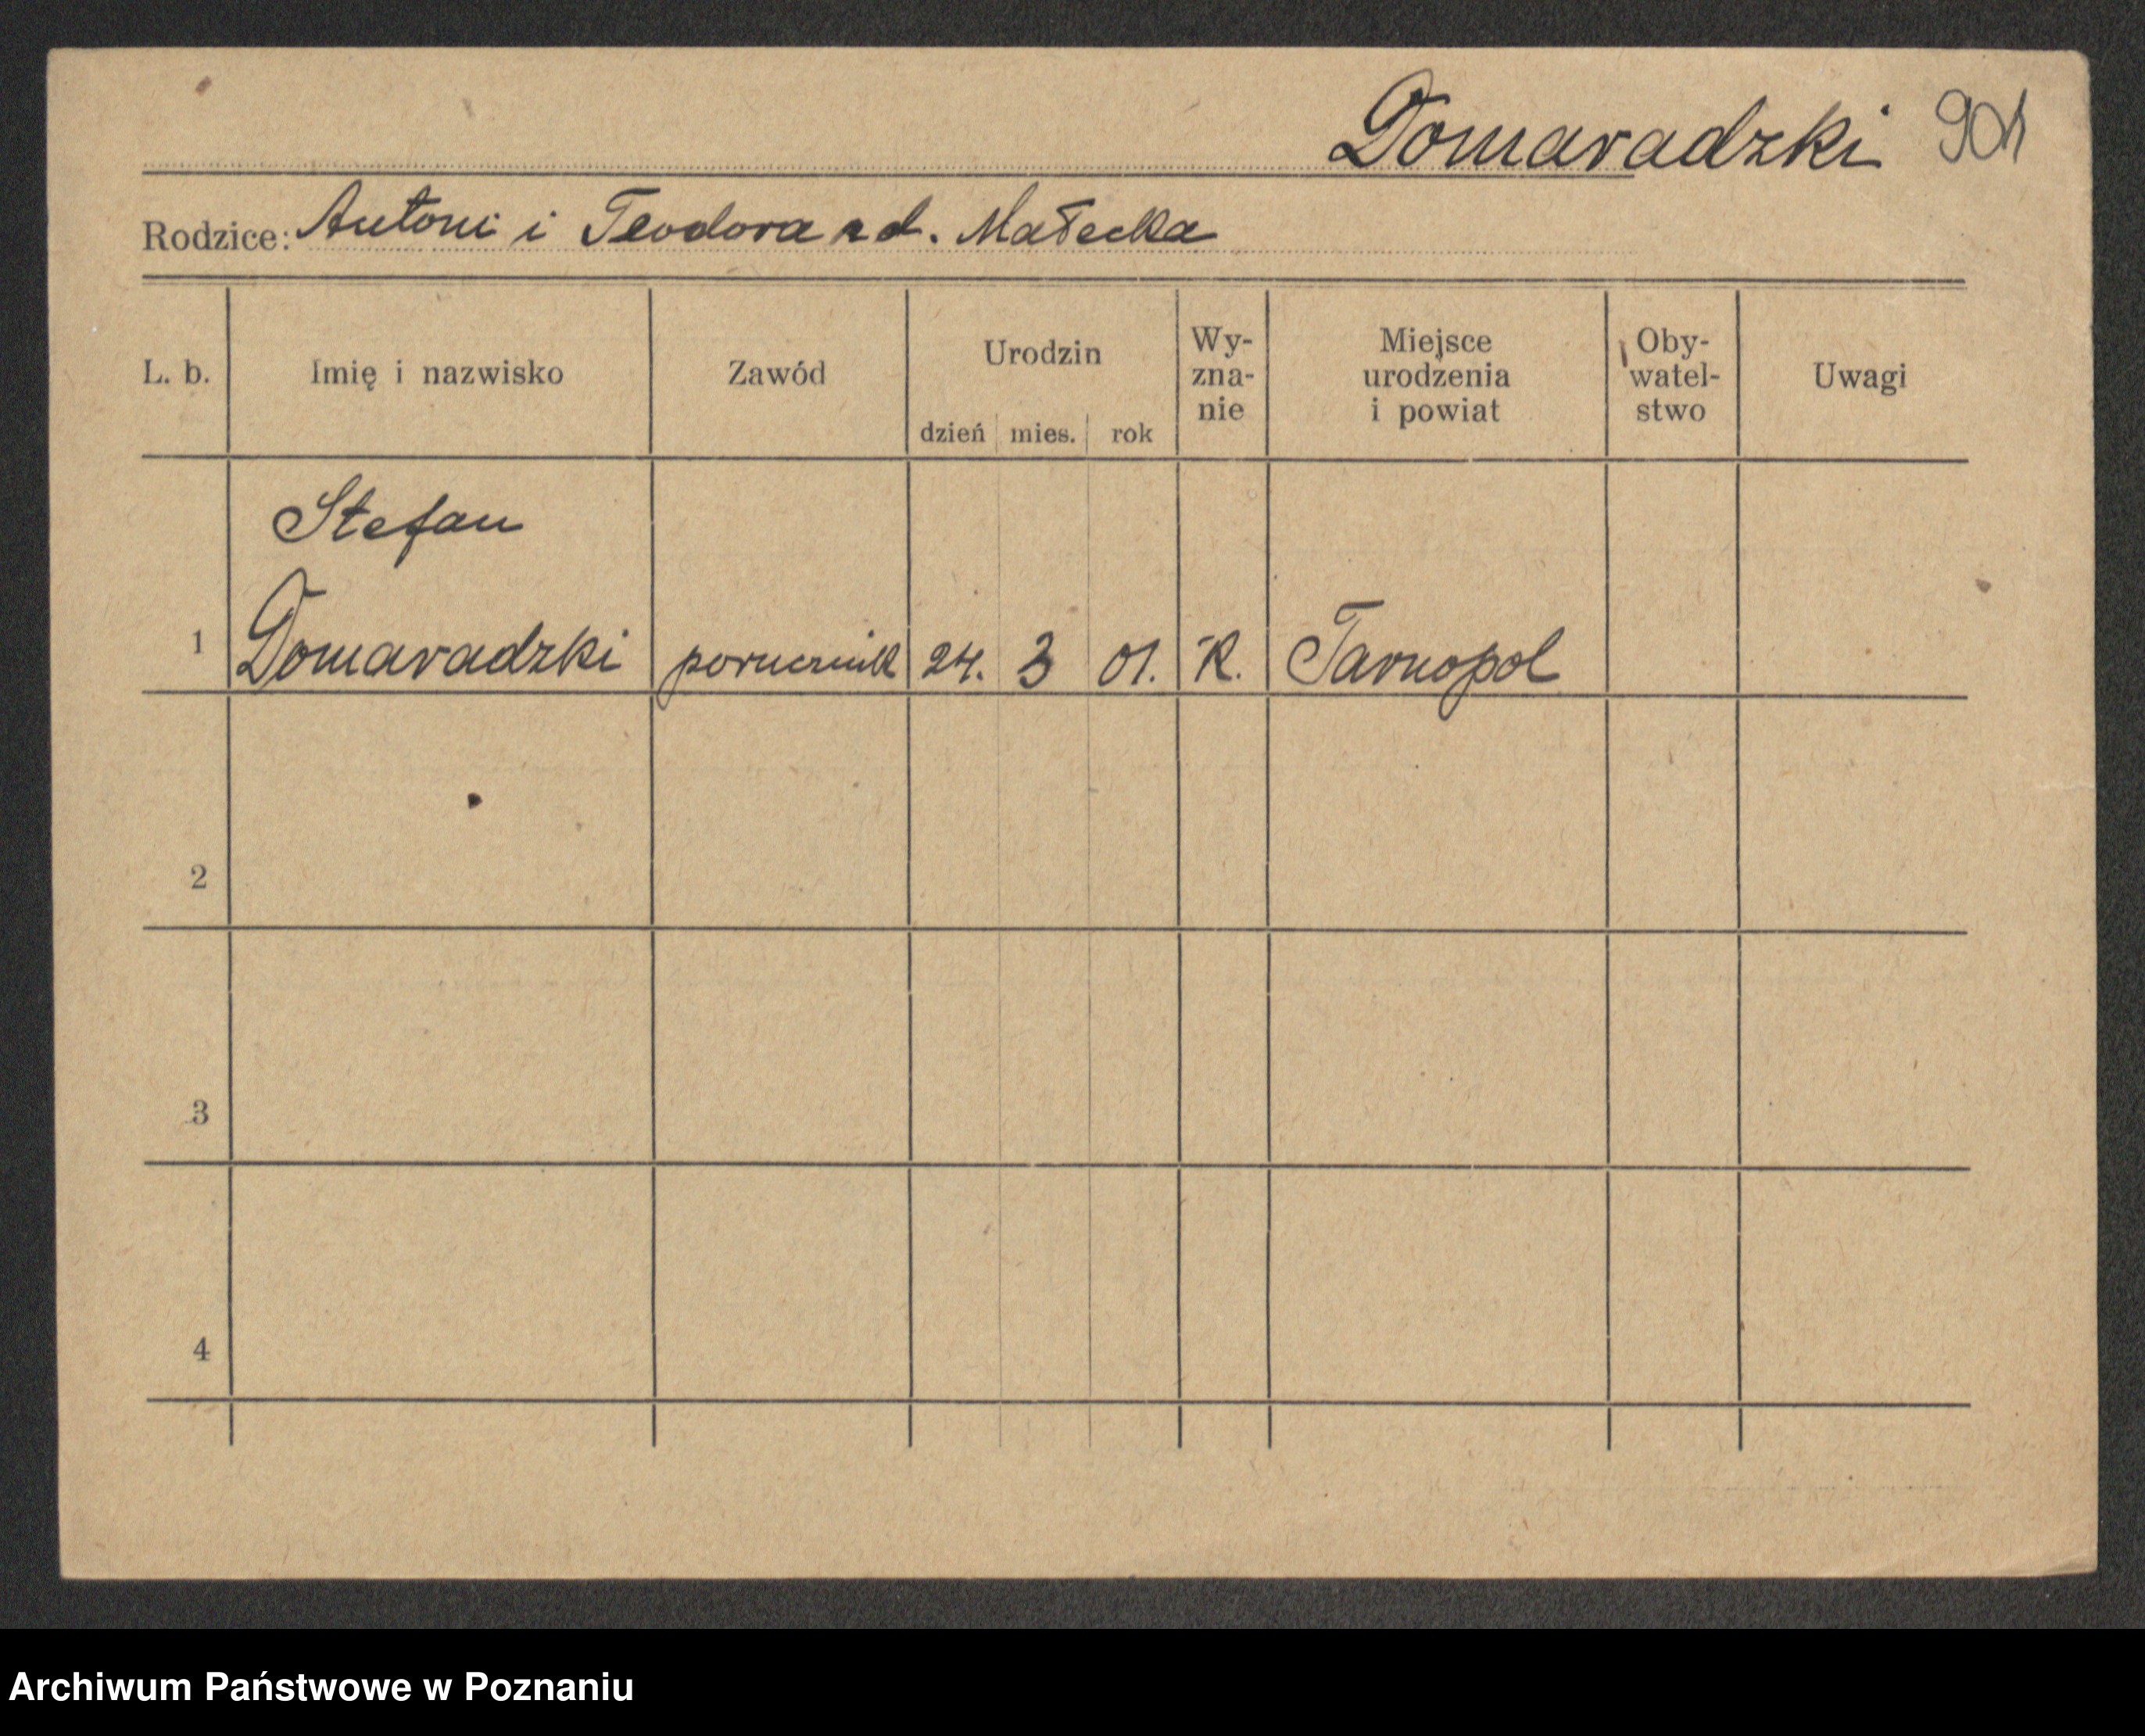 Domaradzki
Rodzice: Antoni i Teodora zd. Małecka
L. b. Imię i nazwisko Zawód Urodzin dzień mies. rok Wy-
zna-
nie Miejsce
urodzenia
i powiat Oby-
watel-
stwo Uwagi
Stefan
1 Domaradzki porucznik 24. 3 01. R. Tarnopol
2
3
4
Archiwum Państwowe w Poznaniu